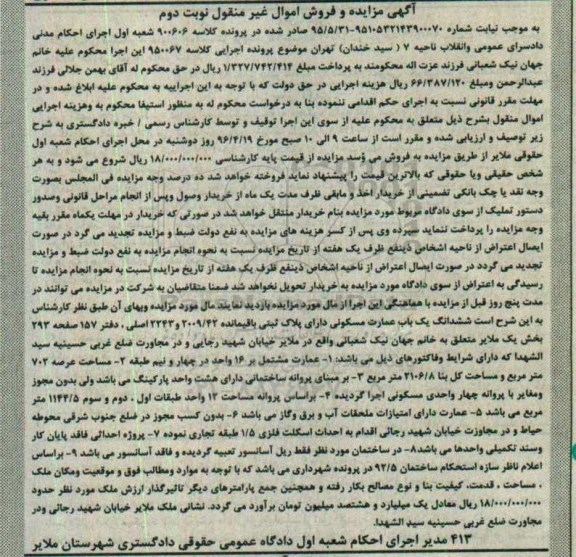 آگهی مزایده و فروش اموال غیر منقول نوبت دوم
به موجب نیابت شماره ۹۵۱۰۵۳۲۱۴۳۹۰۰۰۷۰-۹۵/۵/۳۱ صادر شده در پرونده کلاسه ۹۰۰۶۰۶ شعبه اول اجرای احکام مدنی
دادسرای عمومی وانقلاب ناحیه ۷ ( سید خندان) تهران موضوع پرونده اجرایی کلاسه ۹۵۰۰۶۷ این اجرا محکوم علیه خانم
جهان نیک شعبانی فرزند عزت اله محکومند به پرداخت مبلغ ۱/۳۲۷/۷۴۲/۴۱۴ ریال در حق محکوم له آقای بهمن جلالی فرزند
عبدالرحمن ومبلغ ۶۶/۳۸۷/۱۲۰ ریال هزینه اجرایی در حق دولت که با توجه به این اجراییه به محکوم علیه ابلاغ شده و در
مهلت مقرر قانونی نسبت به اجرای حکم اقدامی ننموده بنا به درخواست محکوم له به منظور استیفا محکوم به وهزینه اجرایی
اموال منقول بشرح ذیل متعلق به محکوم علیه از سوی این اجرا توقیف و توسط کارشناس رسمی / خبره دادگستری به شرح
زیر توصیف و ارزیابی شده و مقرر است از ساعت ۹ الی ۱۰ صبح مورخ ۹۶/۴/۱۹ روز دوشنبه در محل اجرای احکام شعبه اول
حقوقی ملایر از طریق مزایده به فروش می وُسد مزایده از قیمت پایه کارشناسی ۱۸/۰۰۰/۰۰۰/۰۰۰ ریال شروع می شود و به هر
شخص حقیقی ویا حقوقی که بالاترین قیمت را پیشنهاد نماید فروخته خواهد شد ده درصد وجه مزایده فی المجلس بصورت
وجه نقد یا چک بانکی تضمینی از خریدار اخذ و مابقی ظرف مدت یک ماه از خریدار وصول وپس از انجام مراحل قانونی وصدور
دستور تملیک از سوی دادگاه مربوط مورد مزایده بنام خریدار منتقل خواهد شد در صورتی که خریدار در مهلت یکماه مقرر بقیه
وجه مزایده را پرداخت ننماید سپرده وی پس از کسر هزینه های مزایده به نفع دولت ضبط و مزایده تجدید می گرد در صورت
ایصال اعتراض از ناحیه اشخاص ذینفع ظرف یک هفته از تاریخ مزایده نسبت به نحوه انجام مزایده به نفع دولت ضبط و مزایده
تجدید می گردد در صورت ایصال اعتراض از ناحیه اشخاص ذینفع ظرف یک هفته از تاریخ مزایده نسبت به نحوه انجام مزایده تا
رسیدگی به اعتراض از سوی دادگاه مورد مزایده به خریدار تحویل نخواهد شد ضمنا متقاضیان به شرکت در مزایده می توانند در
مدت پنج روز قبل از مزایده با هماهنگی این اجرا از مال مورد مزایده بازدید نمایند مال مورد مزایده وبهای آن طبق نظر کارشناس
به این شرح است ششدانگ یک باب عمارت مسکونی دارای پلاک ثبتی باقیمانده ۲۰۰۹/۴۲ و ۲۲۴۳ اصلی ، دفتر ۱۵۷ صفحه ۲۹۳
بخش یک ملایر متعلق به خانم جهان نیک شعبانی واقع در ملایر خیابان شهید رجایی و در مجاورت ضلع غربی حسینیه سید
الشهدا که دارای شرایط وفاکتورهای ذیل می باشد: ۱- عمارت مشتمل بر ۱۶ واحد در چهار و نیم طبقه ۲- مساحت عرصه ۷۰۲
متر مربع و مساحت کل بنا ۲۱۰۶/۸ متر مربع ۳- بر مبنای پروانه ساختمانی دارای هشت واحد پارکینگ می باشد ولی بدون مجوز
ومغایر با پروانه چهار واحدی مسکونی اجرا گردیده ۴- براساس پروانه مساحت ۱۲ واحد طبقات اول ، دوم و سوم ۱۱۴۴/۵ متر
مربع می باشد ۵- عمارت دارای امتیازات ملحقات آب و برق وگاز می باشد ۶- بدون کسب مجوز در ضلع جنوب شرقی محوطه
حیاط و در مجاوزت خیابان شهید رجائی اقدام به احداث اسکلت فلزی ۱/۵ طبقه تجاری نموده ۷- پروژه احداثی فاقد پایان کار
وسند تکمیلی واحدها می باشد۸- در ساختمان مورد نظر فقط ریل آسانسور تعبیه گردیده و فاقد آسانسور می باشد ۹- براساس
اعلام ناظر سازه استحکام ساختمان ۹۲/۵ در پرونده شهرداری می باشد که با توجه به موارد ومطالب فوق و موقعیت ومکان ملک
، مساحت ، قدمت، کیفیت بنا و نوع مصالح بکار رفته و همچنین جمع پارامترهای دیگر تاثیرگذار ارزش ملک مورد نظر حدود
۱۸/۰۰۰/۰۰۰/۰۰۰ ریال معادل یک میلیارد و هشتصد میلیون تومان برآورد می گردد. نشانی ملک ملایر خیابان شهید رجائی ودر
مجاورت ضلع غربی حسینیه سید الشهدا.
۴۱۳ مدیر اجرای احکام شعبه اول دادگاه عمومی حقوقی دادگستری شهرستان ملایر